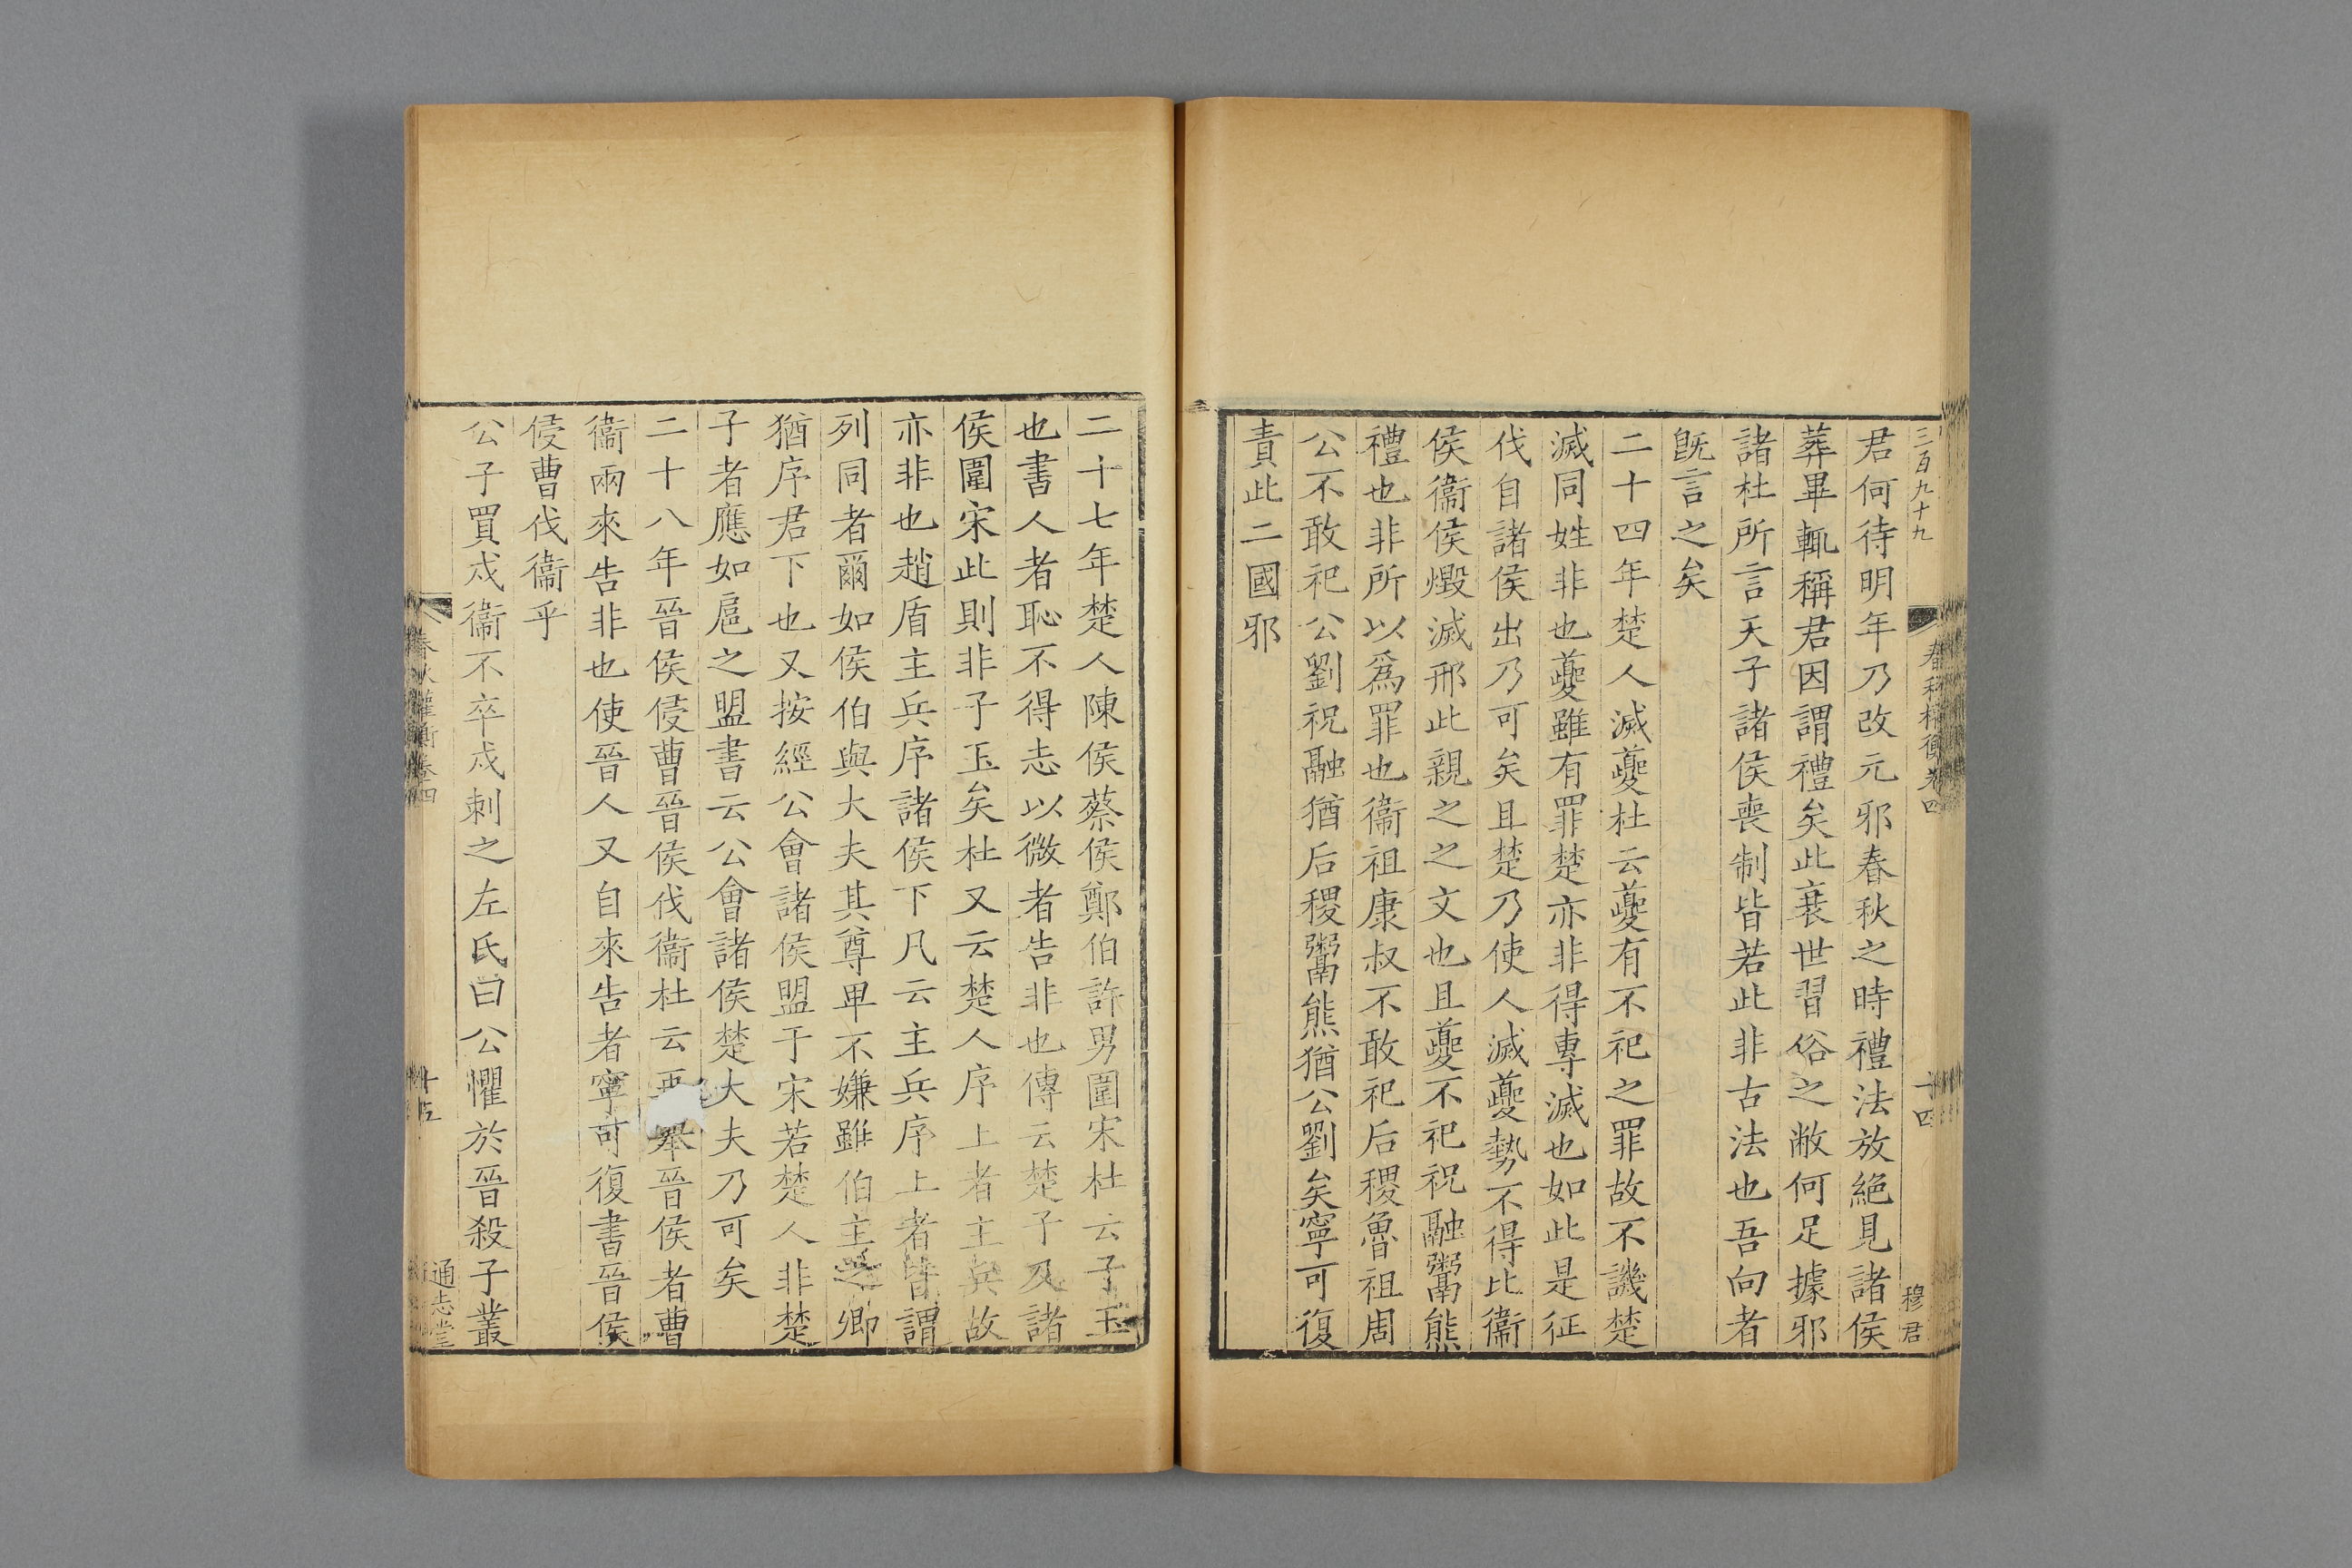 三百九十九
春秋權衡卷四
十四
穆君
君何待明年乃改元邪春秋之時禮法放絕見諸侯
葬畢輒稱君因謂禮矣此衰世習俗之敝何足據邪
諸杜所言天子諸侯喪制皆若此非古法也吾向者
旣言之矣
二十四年楚人滅夔杜云夔有不祀之罪故不譏楚
滅同姓非也夔雖有罪楚亦非得專滅也如此是征
伐自諸侯出乃可矣且楚乃使人滅夔勢不得比衞
侯衞侯燬滅邢此親之之文也且夔不祀祝融鬻熊
禮也非所以爲罪也衞祖康叔不敢祀后稷魯祖周
公不敢祀公劉祝融猶后稷鬻熊猶公劉矣寧可復
責此二國邪
二十七年楚人陳侯蔡侯鄭伯許男圍宋杜云子玉
也書人者恥不得志以微者告非也傳云楚子及諸
侯圍宋此則非子玉矣杜又云楚人序上者主兵故
亦非也趙盾主兵序諸侯下凡云主兵序上者皆謂
列同者爾如侯伯與大夫其尊卑不嫌雖伯主之卿
猶序君下也又按經公會諸侯盟于宋若楚人非楚
子者應如扈之盟書云公會諸侯楚大夫乃可矣
二十八年晉侯侵曹晉侯伐衞杜云再舉晉侯者曹
衞兩來告非也使晉人又自來告者寧可復書晉侯
侵曹伐衞乎
公子買戍衞不卒戍刺之左氏曰公懼於晉殺子叢
春秋權衡卷四
十五
通志堂